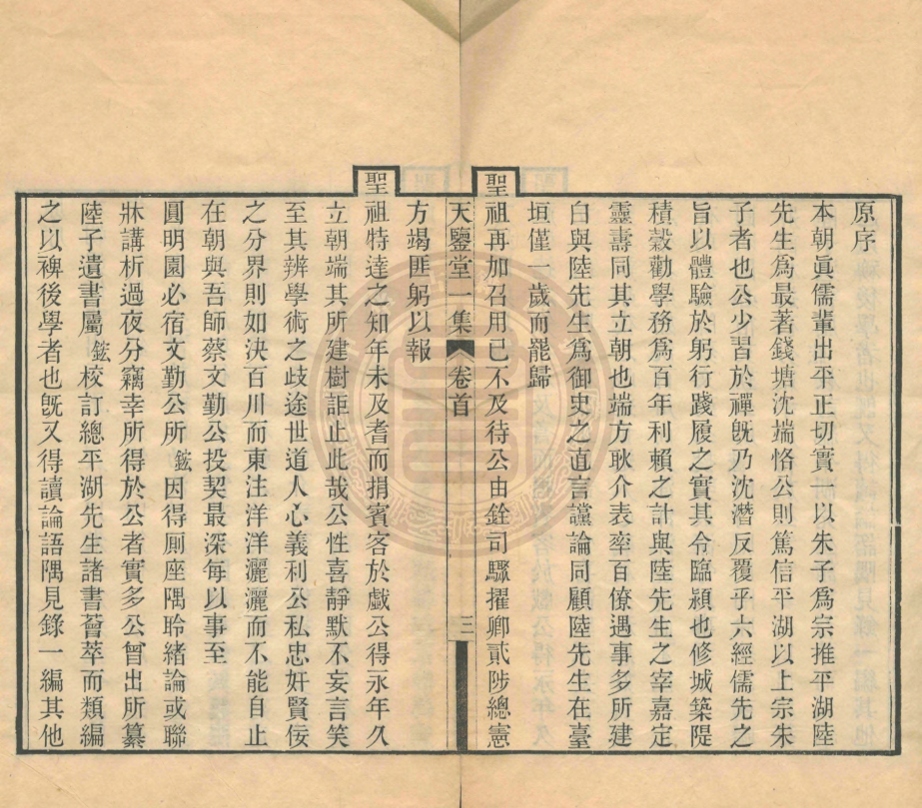 原序
本朝眞儒輩出平正切實一以朱子爲宗推平湖陸
先生爲最著錢塘沈端恪公則篤信平湖以上宗朱
子者也公少習於禪旣乃沈潛反覆乎六經儒先之
旨以體驗於躬行踐履之實其令臨潁也修城築隄
積穀勸學務爲百年利賴之計與陸先生之宰嘉定
靈壽同其立朝也端方耿介表率百僚遇事多所建
白與陸先生爲御史之直言讜論同顧陸先生在臺
垣僅一歲而罷歸
聖祖再加召用已不及待公由銓司驟擢卿貳陟總憲
天鑒堂一集 卷首 三
方竭匪躬以報
聖祖特達之知年未及耆而捐賓客於戲公得永年久
立朝端其所建樹詎止此哉公性喜靜默不妄言笑
至其辨學術之歧途世道人心義利公私忠奸賢佞
之分界則如決百川而東注洋洋灑灑而不能自止
在朝與吾師蔡文勤公投契最深每以事至
圓明園必宿文勤公所鋐因得厠座隅聆緒論或聯
牀講析過夜分竊幸所得於公者實多公曾出所纂
陸子遺書屬鋐校訂總平湖先生諸書薈萃而類編
之以裨後學者也旣又得讀論語隅見錄一編其他